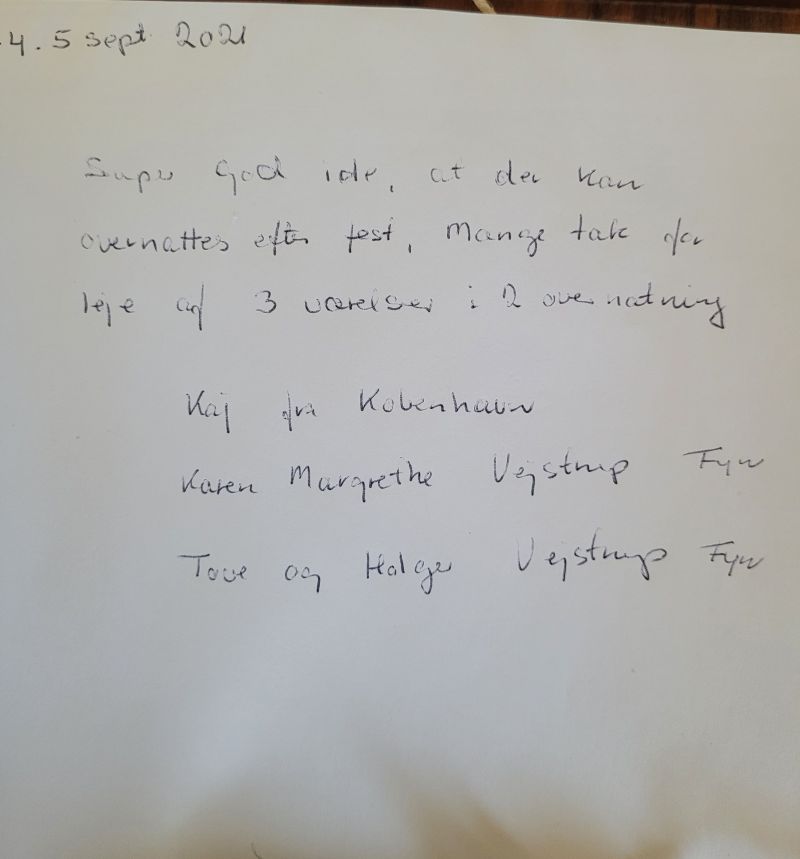 4. 5 sept 2021
Super God ide, at der kan
overnattes efter fest, Mange tak for
leje af 3 værelser i 2 overnatning
Kaj fra København
Karen Margrethe Vejstrup Fyn
Tove og Holger Vejstrup Fyn